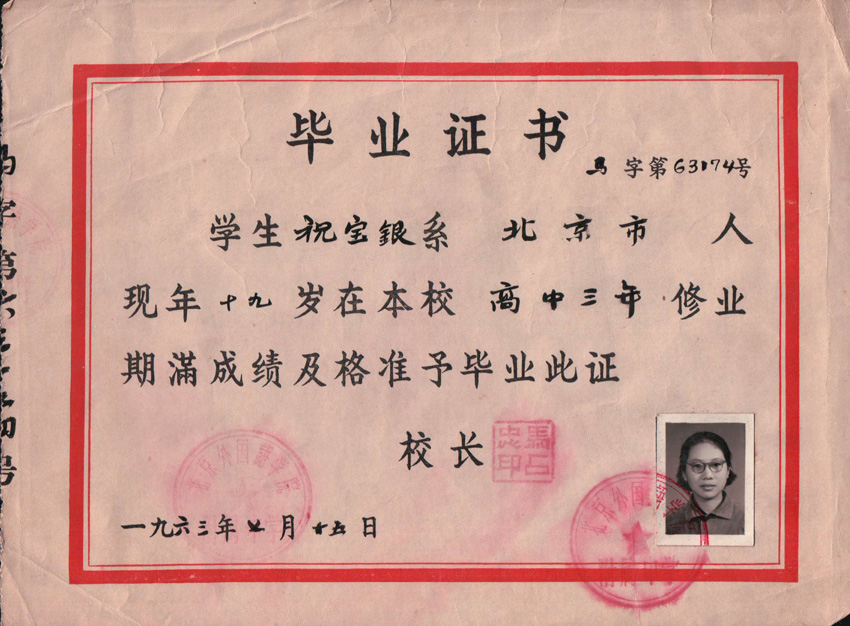 毕业证书
字第63174号
学生祝宝银系 北京市 人
现年十九岁在本校 高中三年 修业
期滿成绩及格准予毕业此证
校长
一九六三年七月十五日
北京外国語学院
北京外国
附属中学
字第六三
号